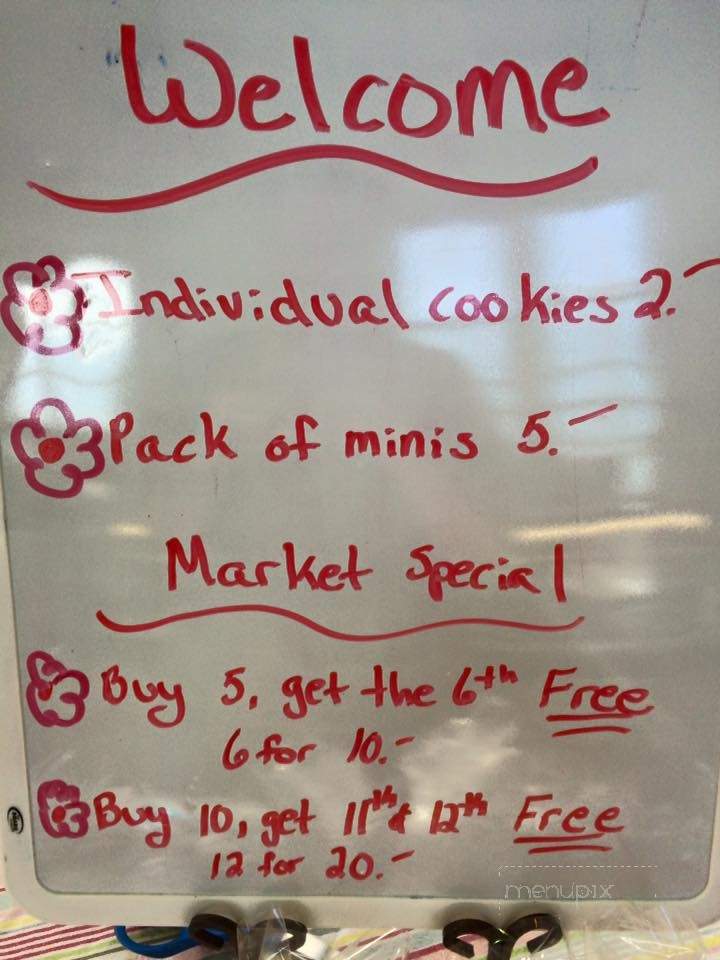 Welcome
Individual cookies 2.-
Pack of minis 5.-
Market Special
Buy 5, get the 6th Free
6 for 10.-
Buy 10, get 11th & 12th Free
12 for 20.-
menupix